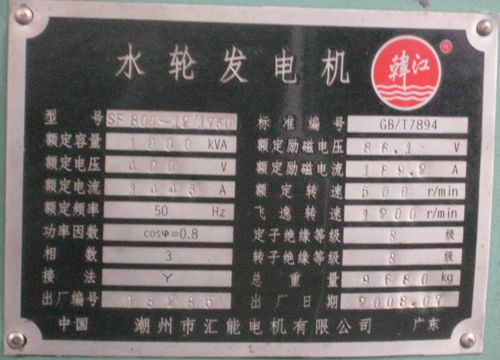 水轮发电机
韓江
型号 SF800-12/1730 标准编号 GB/T7894
额定容量 1000 kVA 额定励磁电压 86.1 V
额定电压 400 V 额定励磁电流 189.2 A
额定电流 1443 A 额定转速 500 r/min
额定频率 50 Hz 飞逸转速 1200 r/min
功率因数 cosφ=0.8 定子绝缘等级 B 级
相数 3 转子绝缘等级 B 级
接法 Y 总重量 9680 kg
出厂编号 出厂日期 2008.07
中国 潮州市汇能电机有限公司 广东